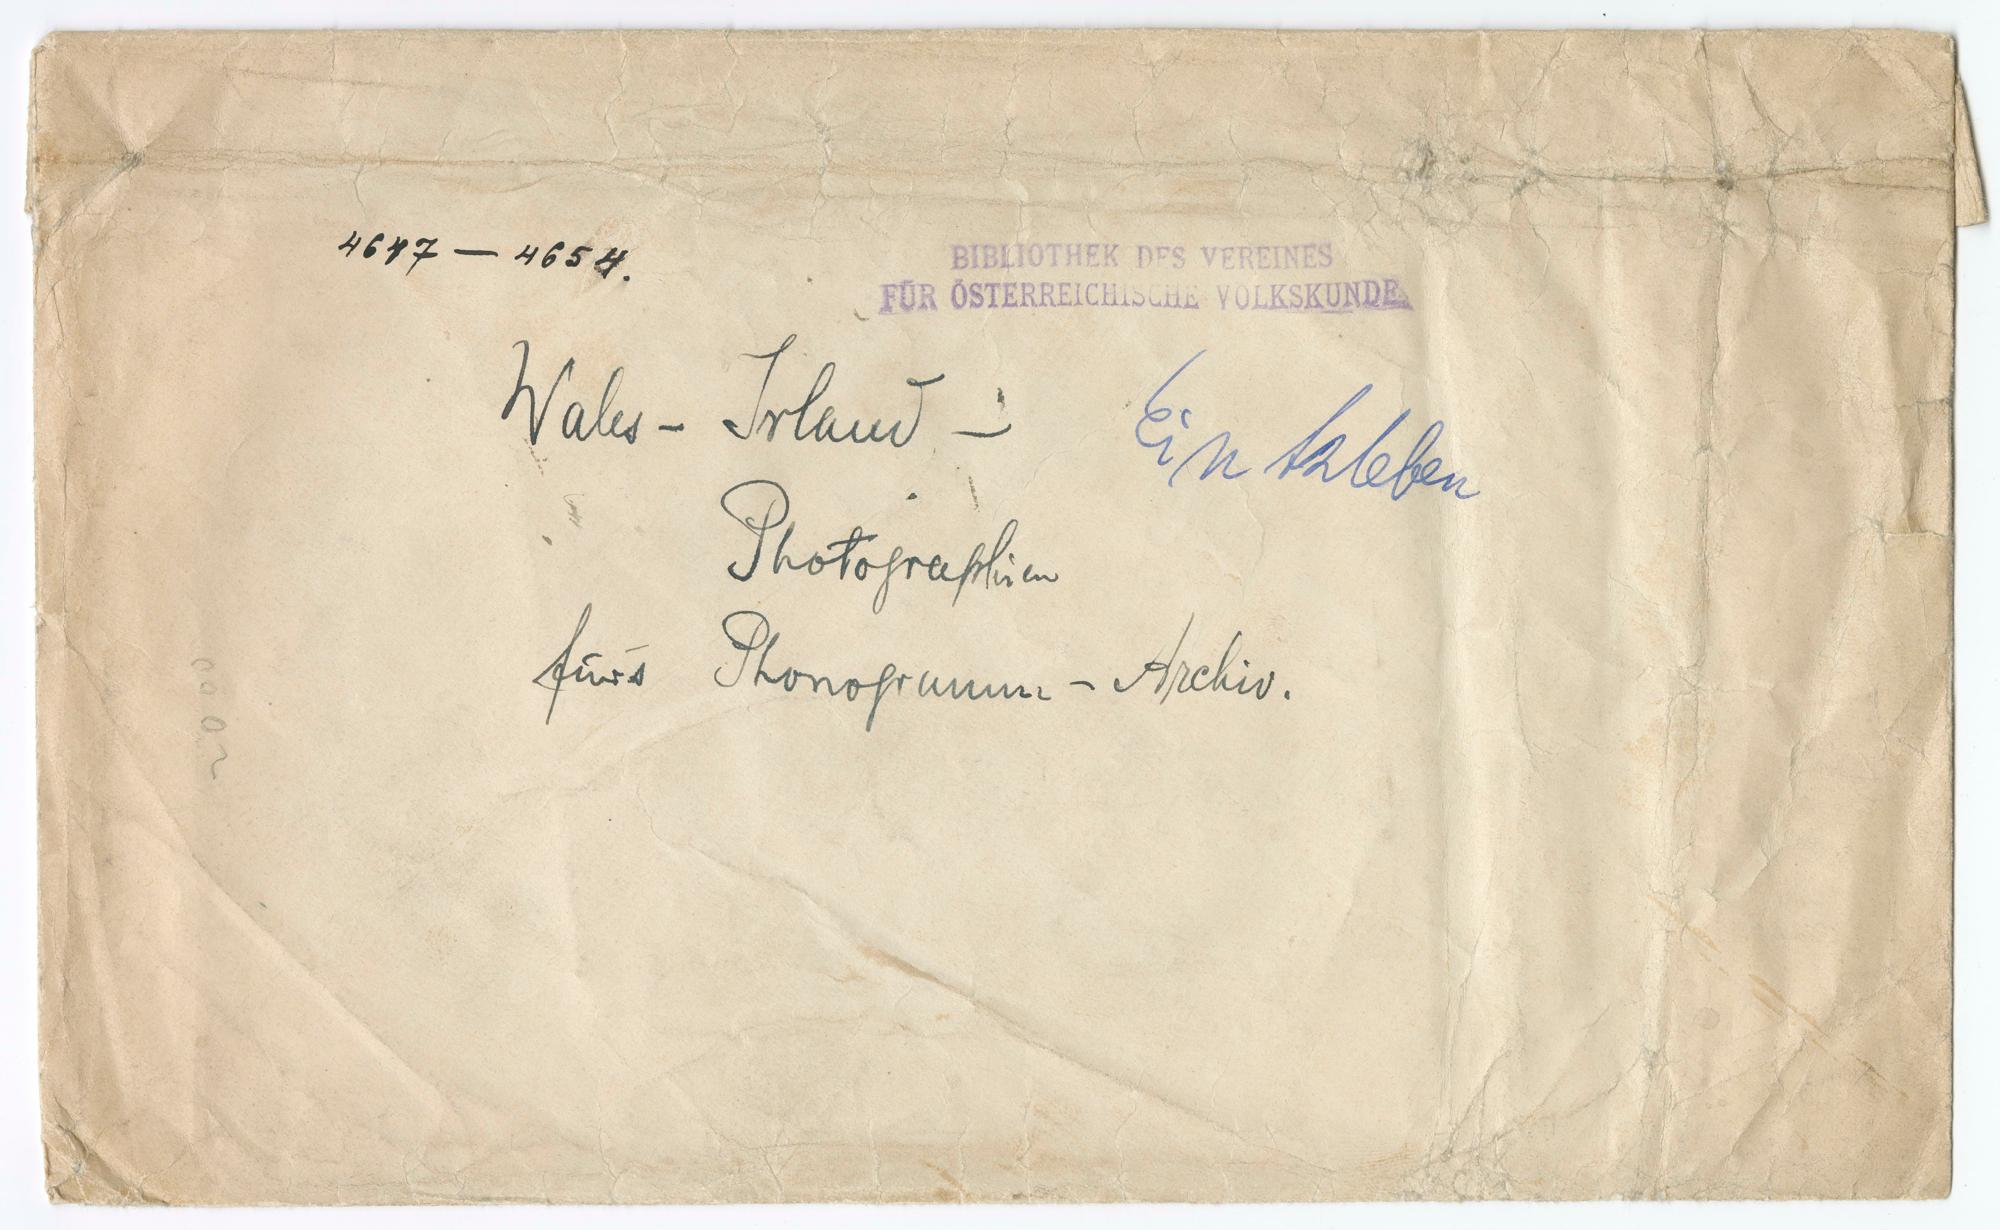 4647 — 4654.
BIBLIOTHEK DES VEREINES
FÜR ÖSTERREICHISCHE VOLKSKUNDE.
Wales - Irland -
Photographien
fürs Phonogramm - Archiv.